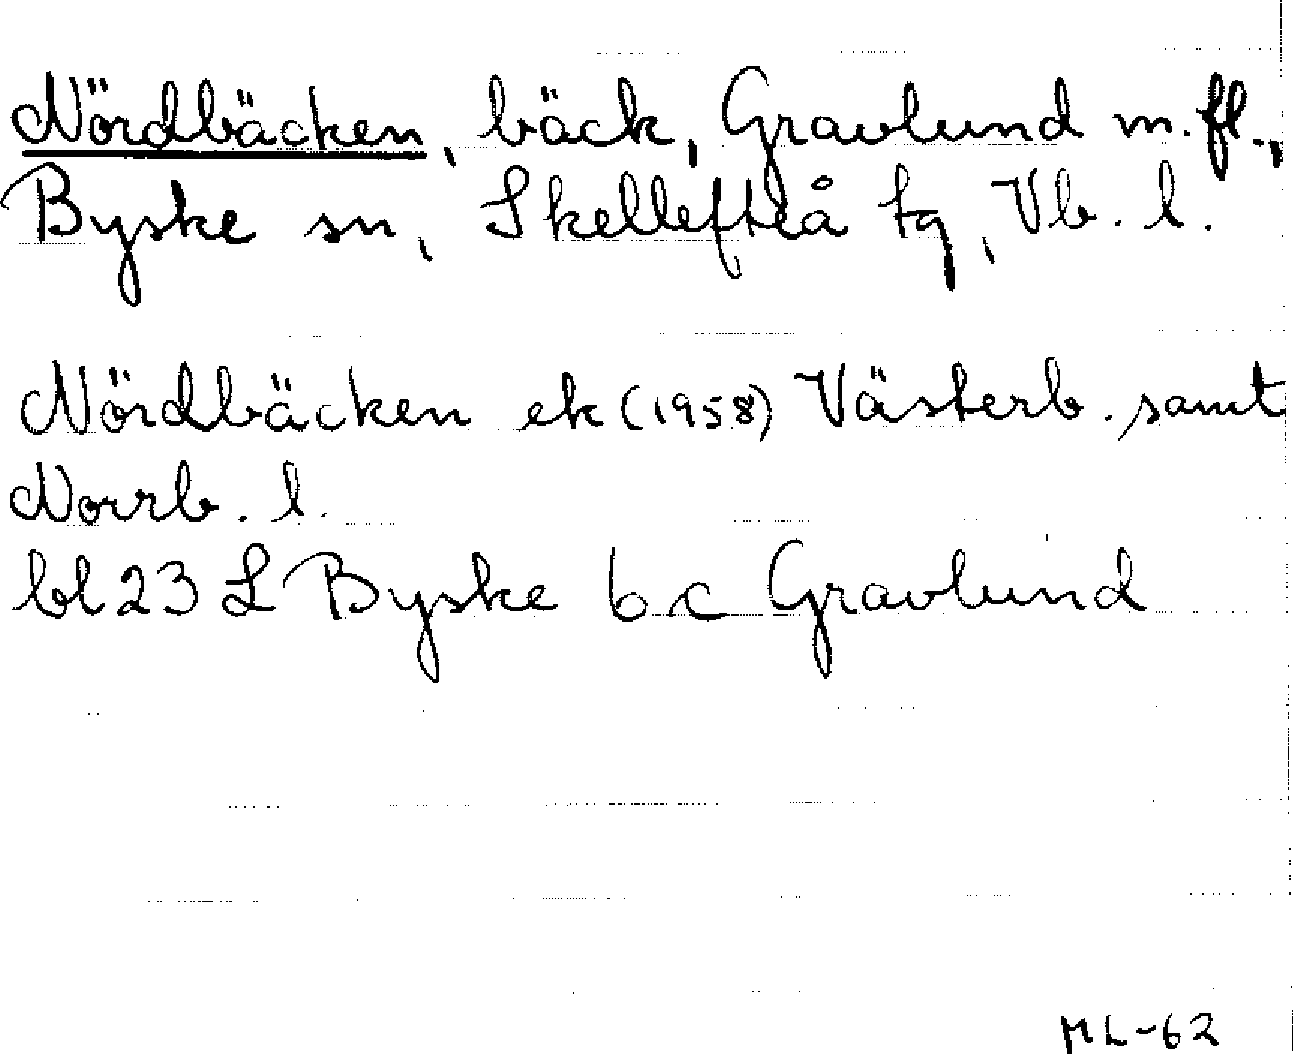 Nördbäcken, bäck, Gravlund m.fl.,
Byske sn, Skellefteå tg, Vb. l.
Nördbäcken ek (1958) Västerb. samt
Norrb. l.
bl 23 L Byske 6 c Gravlund
ML-62